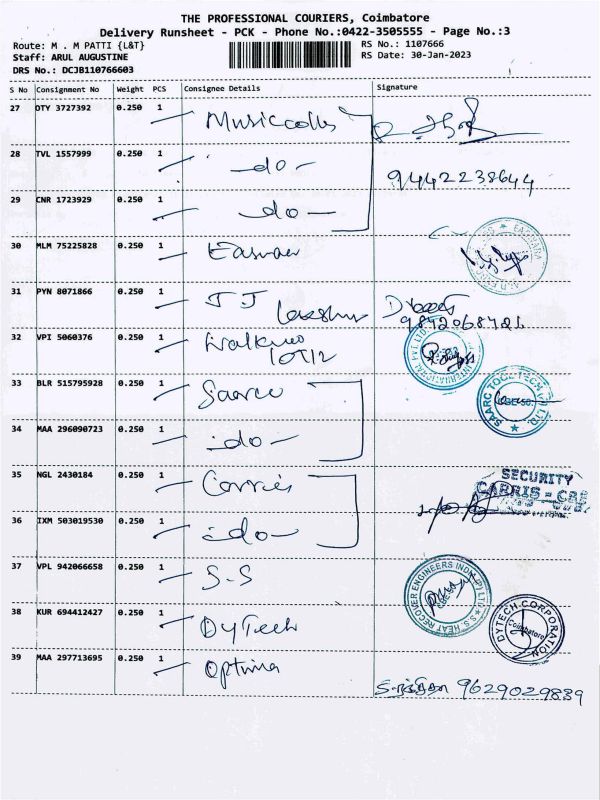 THE PROFESSIONAL COURIERS, Coimbatore
Delivery Runsheet - PCK - Phone No.:0422-3505555 - Page No.:3
Route: M . M PATTI {L&T}
RS No.: 1107666
Staff: ARUL AUGUSTINE
RS Date: 30-Jan-2023
DRS No.: DCJB110766603
S No Consignment No Weight PCS Consignee Details Signature
27 OTY 3727392 0.250 1
28 TVL 1557999 0.250 1 -do-
9442238644
29 CNR 1723929 0.250 1 -do-
30 MLM 75225828 0.250 1
31 PYN 8071866 0.250 1 JJ
32 VPI 5060376 0.250 1
INTERNATIONAL PVT. LTD
33 BLR 515795928 0.250 1 Saarc
SAARC TOOL TECH PVT LTD.
34 MAA 296090723 0.250 1 -do-
35 NGL 2430184 0.250 1 Carris
SECURITY
CARRIS - CBE
36 IXM 503019530 0.250 1 -do-
37 VPL 942066658 0.250 1 S.S
S.S HEAT RECOVER ENGINEERS INDIA (P) LTD
38 KUR 694412427 0.250 1 DyTech
DYTECH CORPORATION
Coimbatore
39 MAA 297713695 0.250 1 Optima
9629029839